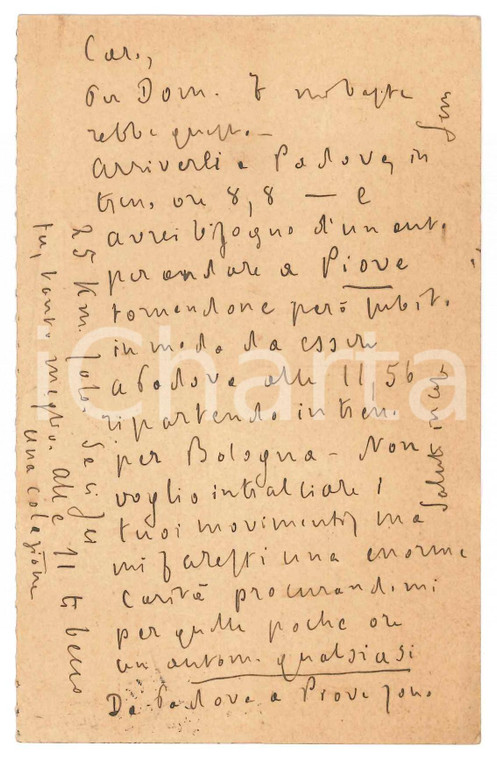 Caro,
Per Dom. 7 mi baste
rebbe questo. —
Arriverei a Padova, in
treno ore 8,8 — e
avrei bisogno d'un aut.
per andare a Piove
tornandone però subito
in modo da essere
a Padova alle 11,56
ripartendo in treno
per Bologna — Non
voglio intralciare i
tuoi movimenti, ma
mi faresti una enorme
carità procurandomi
per quelle poche ore
un autom. qualsiasi
Da Padova a Piove sono
25 Km. solo Se ci sei
tu, tanto meglio. Alle 11 si beve
una colazione
Saluti in
iCharta